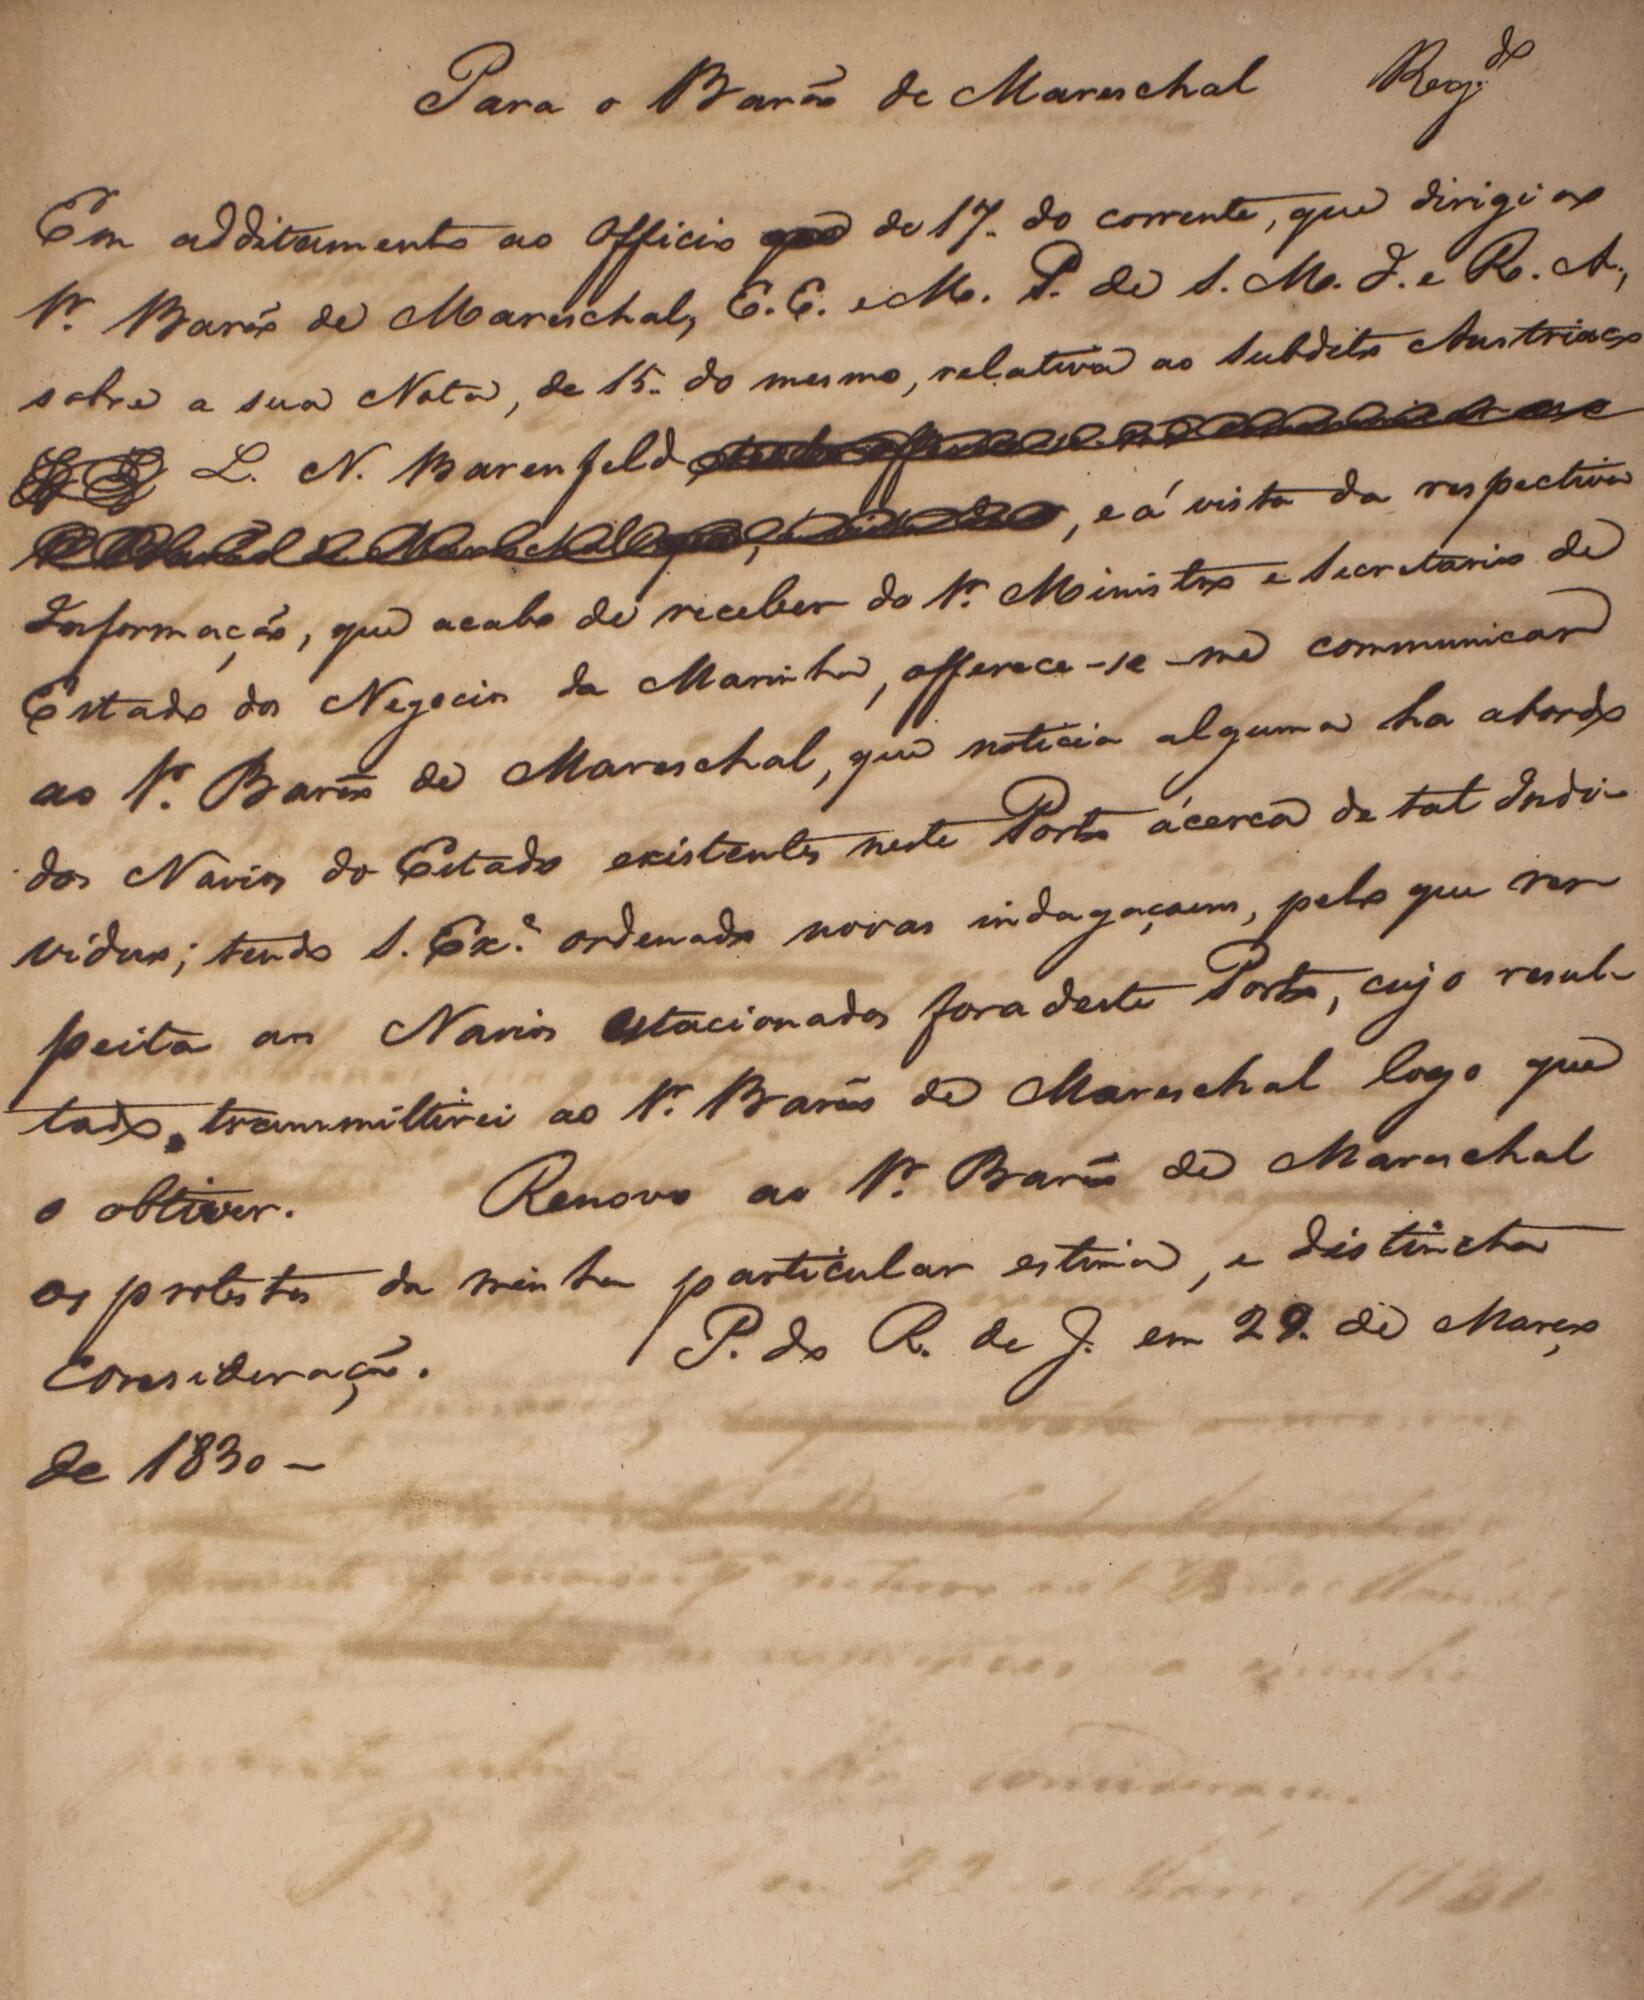 Para o Barão de Mareschal Reg.do
Em additamento ao Officio de 17. do corrente, que dirigi ao
Sr. Barão de Mareschal, E. E. e M. P. de S. M. I. e R. A.,
sobre a sua Nota, de 15. do mesmo, relativa ao Subdito Austriaco
L. N. Barenfeld
, e á vista da respectiva
Informação, que acabo de receber do Sr. Ministro e Secretario de
Estado dos Negocios da Marinha, offerece-se-me communicar
ao Sr. Barão de Mareschal, que noticia alguma ha abordo
dos Navios do Estado existentes neste Porto ácerca de tal Indi-
viduo; tendo S. Ex.ª ordenado novas indagaçoens, pelo que res-
peita aos Navios estacionados fora deste Porto, cujo resul-
tado transmittirei ao Sr. Barão de Mareschal logo que
o obtiver. Renovo ao Sr. Barão de Mareschal
os protestos da minha particular estima, e distincta
Consideração. P. do R. de J. em 29. de Março
de 1830 -